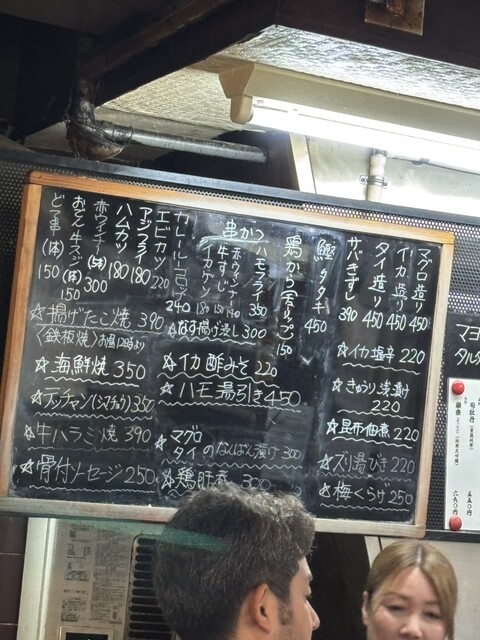 マグロ造り 450
イカ造り 450
タイ造り 450
サバきずし 390
鰹タタキ 450
鶏から(5コ)
150
串かつ
ハモフライ 350
赤ウインナー 150
牛すじ 150
イカゲソ 180
カレーコロッケ 240
エビカツ 220
アジフライ 180
ハムカツ 180
赤ウインナー 300
おでん牛スジ(1本) 150
どて串(1本) 150
☆揚げたこ焼 390
〈鉄板焼〉
☆海鮮焼 350
☆テッチャン(シマチョウ) 350
☆牛ハラミ焼 390
☆骨付ソーセージ 250
☆なす揚げ浸し 300
☆イカ酢みそ 220
☆ハモ湯引き 450
☆マグロ
タイのなんばん漬け 300
☆鶏肝煮 300
☆イカ塩辛 220
☆きゅうり浅漬け
220
☆昆布佃煮 220
☆ズリ湯びき 220
☆梅くらげ 250
マヨ
タル
司牡丹
五五〇円
六九〇円